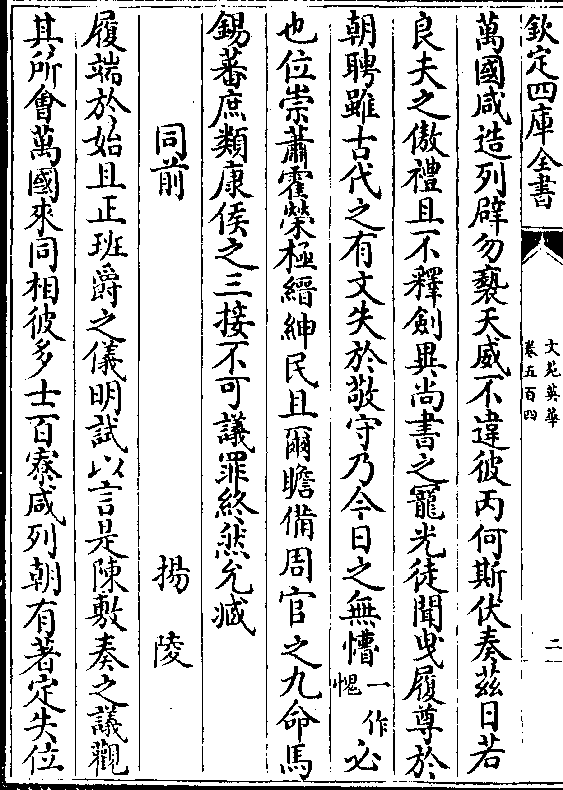 欽定四庫全書
文苑英華
卷五百四
二
萬國咸造列辟勿褻天威不違彼丙何斯伏奏茲日若
良夫之傲禮且不釋劍異尚書之寵光徒聞曳履尊於
朝聘雖古代之有文失於敬守乃今日之無懵一作愧必
也位崇蕭霍榮極縉紳民且爾瞻備周官之九命馬
錫蕃庶類康侯之三接不可議罪終然允臧
同前 揚陵
履端於始且正班爵之儀明試以言是陳敷奏之議觀
其所會萬國來同相彼多士百寮咸列朝有著定失位